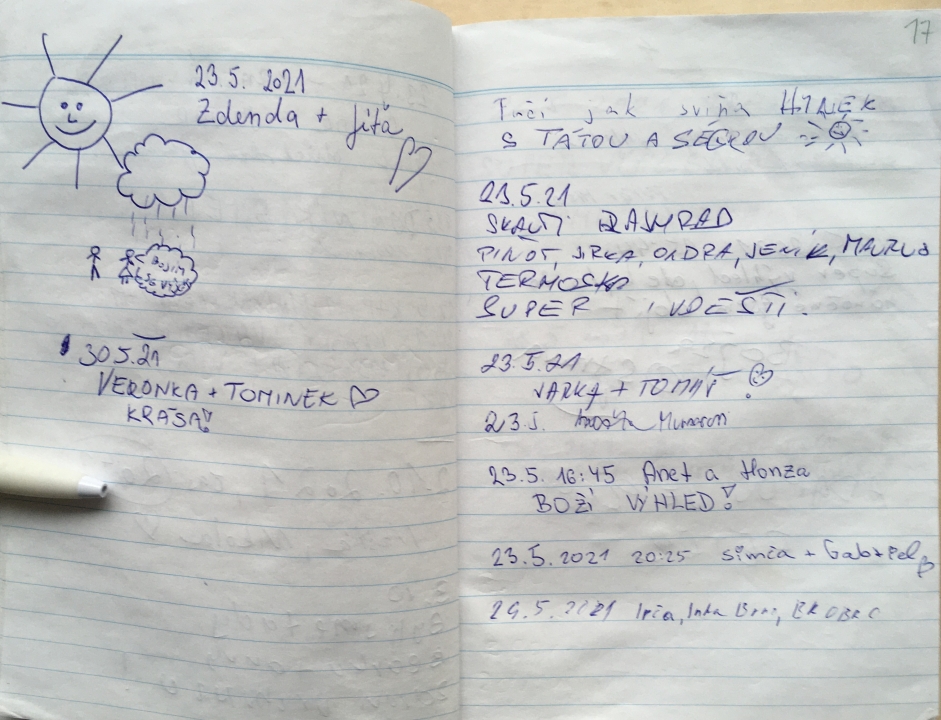 23.5. 2021
Zdenda + Jíťa
BOJÍM
SE
30.5.21
VERONKA + TOMINEK
KRÁSA!
17
Fučí jak sviňa HYNEK
S TÁTOU A SÉGROU
23.5.21
SKAUTI
PIŇOT, JIRKA, ONDRA, JENÍK,
TERMOSKA
SUPER I V DEŠTI.
23.5.21
JARKA + TOMÁŠ !
23.5.
23.5. 16:45 Anet a Honza
BOŽÍ VÝHLED!
23.5.2021 20:25 Simča + Gabriel
29.5.2021